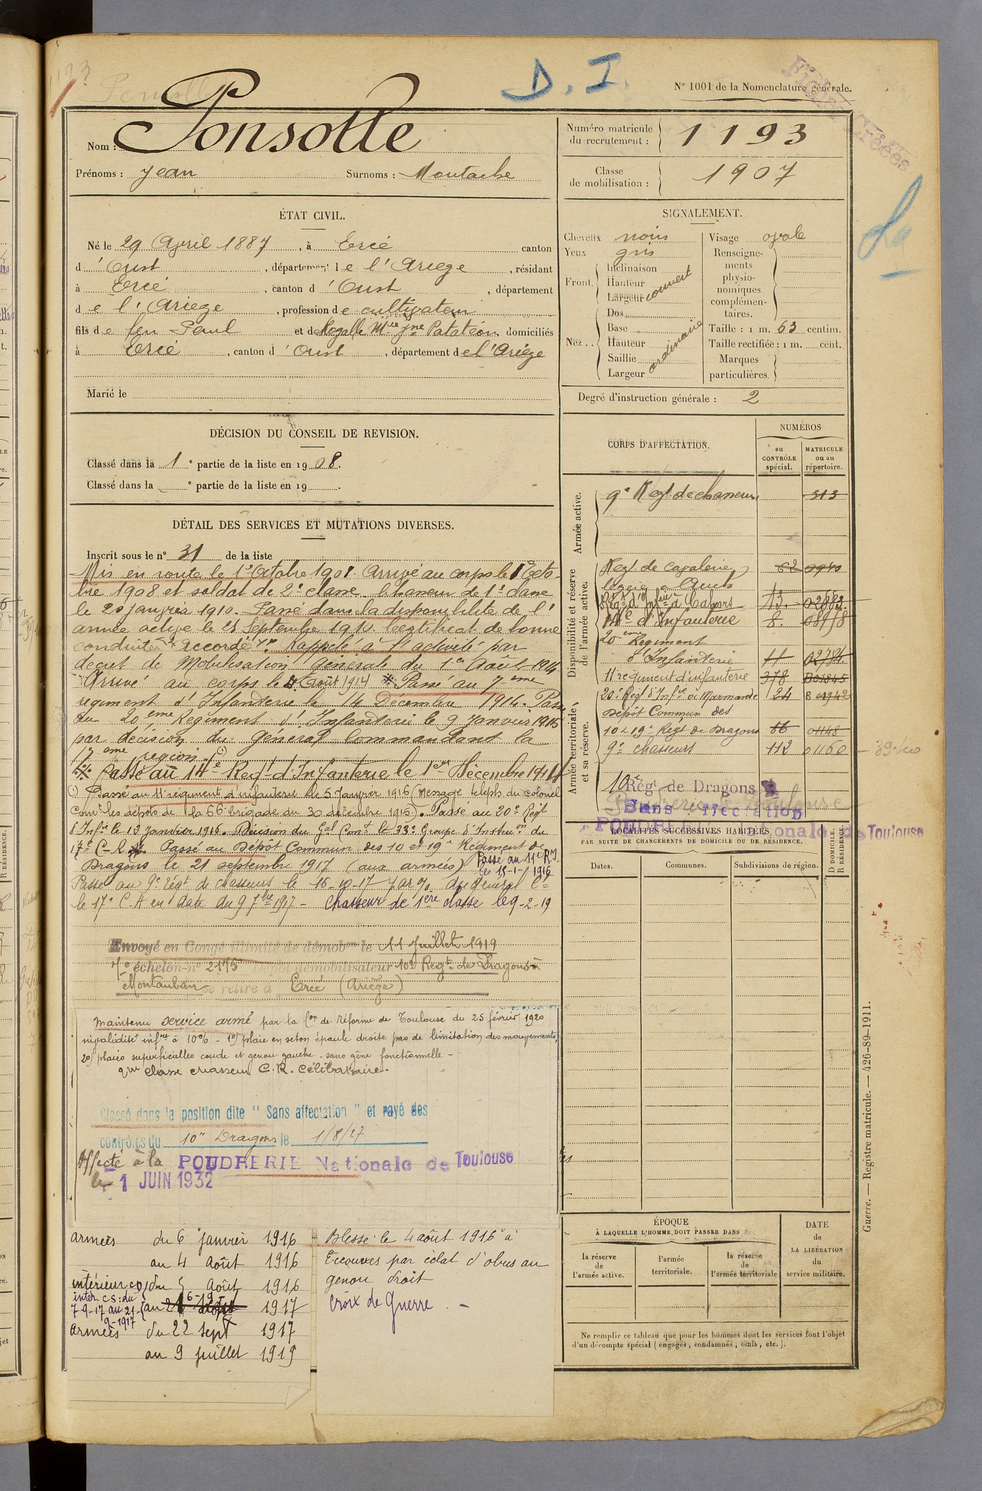 1193
D. I.
N° 1001 de la Nomenclature générale.
Nom : Ponsolle
Prénoms : Jean Surnoms : Moutache
Numéro matricule du recrutement : 1193
Classe de mobilisation : 1907
ÉTAT CIVIL.
Né le 29 Avril 1887, à Ercé canton
d'Oust, département de l'Ariège, résidant
à Ercé, canton d'Oust, département
de l'Ariège, profession de cultivateur
fils de feu Paul et de Jne Patatéon, domiciliés
à Ercé, canton d'Oust, département de l'Ariège
Marié le
SIGNALEMENT.
Cheveux noirs
Yeux gris
Front. Inclinaison
Hauteur
Largeur couvert
Nez. Dos
Base
Hauteur
Saillie
Largeur ordinaire
Visage ovale
Renseignements physionomiques complémentaires.
Taille : 1 m. 63 centim.
Taille rectifiée : 1 m. cent.
Marques particulières.
Degré d'instruction générale : 2
DÉCISION DU CONSEIL DE REVISION.
Classé dans la 1e partie de la liste en 1908.
Classé dans la e partie de la liste en 19
DÉTAIL DES SERVICES ET MUTATIONS DIVERSES.
Inscrit sous le n° 31 de la liste
Mis en route le 1er Octobre 1908. Arrivé au corps le Octo-
bre 1908 et soldat de 2e classe. Chasseur de 1e classe
le 20 janvier 1910. Passé dans la disponibilité de l'
armée active le 25 Septembre 1910. Certificat de bonne
conduite accordé. Rappelé à l'activité par
décret de Mobilisation Générale du 1er Août 1914
Arrivé au corps le Août 1914 Passé au 7eme
régiment d'Infanterie le 14 Décembre 1914. Passé
au 20eme Régiment d'Infanterie le 9 janvier 1915
par décision du général Commandant la
17eme région.
Passé au 14e Regt d'Infanterie le 1er Décembre 1914
Passé au 11e régiment d'infanterie le 5 Janvier 1916 (message téléph. du colonel
Comt les dépôts de la 66e brigade du 30 décembre 1915). Passé au 20e Régt
d'Infie le 13 Janvier 1916. Décision du Gal Comt le 33e Groupe d'Instron du
17e C.R. Passé au Dépôt Commun des 10 et 19e Régiment de
Dragons le 21 septembre 1917 (aux armées) Passé au 11e R.I. le 15-1-1916
Passé au 9e Régt de chasseurs le 16-10-17 par du général Ct
le 17e C.A en date du 9 7bre 1917 - Chasseur de 1ere classe le 9-2-19
Envoyé en Congé illimité de démobon le 11 Juillet 1919
7e échelon n° 2175 Dépôt démobilisateur 10e Regt de Dragons à
Montauban se retire à Ercé (Ariège)
Maintenu service armé par la Con de réforme de Toulouse du 25 février 1920
invalidité infre à 10% - 1°) plaie en séton épaule droite pas de limitation des mouvements
2°) plaies superficielles coude et genou gauche. sans gêne fonctionnelle -
Classé dans la position dite "Sans affectation" et rayé des
contrôles du 10e Dragons le 1/8/27
Affecté à la POUDRERIE Nationale de Toulouse
le 1 JUIN 1932
armées du 6 janvier 1916
au 4 Août 1916
intérieur du 5 Août 1916
inter. C.S. du 7-9-17 au 21-9-1917
1917
armées du 22 sept 1917
au 9 juillet 1919
Blessé le 4 août 1916 à
par éclat d'obus au
genou droit
Croix de Guerre. -
CORPS D'AFFECTATION.
NUMÉROS
au CONTRÔLE spécial.
MATRICULE ou au répertoire.
Armée active.
9e Regt de chasseurs 313
Disponibilité et réserve de l'armée active.
Regt de Cavalerie 62
Régt d'Infie de Cahors 13.
14e d'Infanterie 8.
20e Regiment d'Infanterie 11
11e regiment d'infanterie 378
20e Regt d'Infie de Marmande 124
Armée territoriale et sa réserve.
Dépôt Commun des
10 et 19e Regt de Dragons 66
9e chasseurs 112 01160
10e Régt de Dragons
Sans affectation
POUDRERIE Nationale de Toulouse
LOCALITÉS SUCCESSIVES HABITÉES
PAR SUITE DE CHANGEMENTS DE DOMICILE OU DE RÉSIDENCE.
Dates. Communes. Subdivisions de région. D DOMICILE R RÉSIDENCE
ÉPOQUE
À LAQUELLE L'HOMME DOIT PASSER DANS
la réserve de l'armée active. l'armée territoriale. la réserve de l'armée territoriale
DATE DE LA LIBÉRATION du service militaire.
Ne remplir ce tableau que pour les hommes dont les services font l'objet
d'un décompte spécial (engagés, condamnés, omis, etc.).
Guerre. — Registre matricule. — 426-89-1911.